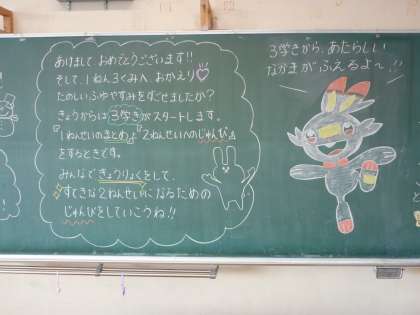 あけまして おめでとうございます!!
そして、1ねん3くみへ おかえり♡
たのしいふゆやすみをすごせましたか?
きょうからは3学きがスタートします。
『1ねんせいのまとめ』『2ねんせいへのじゅんび』
をするときです。
みんなできょうりょくをして、
すてきな2ねんせいになるための
じゅんびをしていこうね!!
3学きから、あたらしい
なかまがふえるよ〜!!